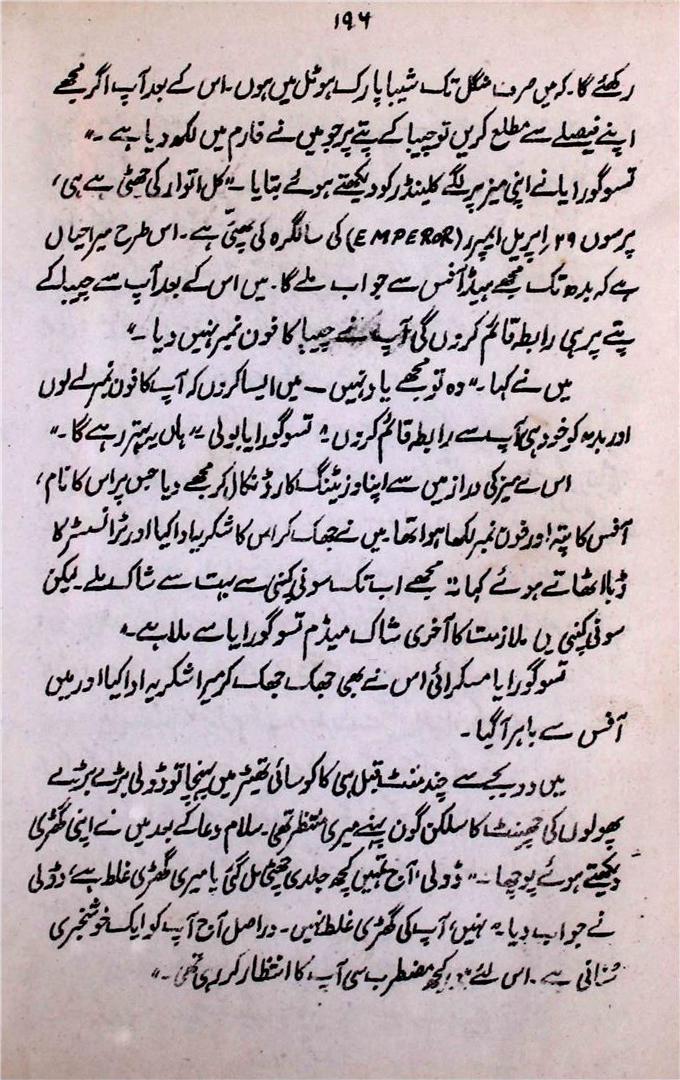 ۱۹۶
رکھئے گا۔ کہ میں صرف منگل تک شیبا پارک ہوٹل میں ہوں۔ اس کے بعد آپ اگر مجھے
اپنے فیصلے سے مطلع کریں تو چیبا کے پتے پر جو میں نے فارم میں لکھ دیا ہے ۔"
تسوگورایا نے اپنی میز پر لگے کلینڈر کو دیکھتے ہوئے بتایا " کل اتوار کی چھٹی ہے ہی،
پرسوں ۲۹ اپریل ایمپرر (EMPEROR) کی سالگرہ کی چھٹی ہے۔ اس طرح میرا خیال
ہے کہ بدھ تک مجھے ہیڈ آفس سے جواب ملے گا۔ میں اس کے بعد آپ سے چیبا کے
پتے پر ہی رابطہ قائم کروں گی آپ نے چیبا کا فون نمبر نہیں دیا ۔"
میں نے کہا۔" وہ تو مجھے یاد نہیں ۔ میں ایسا کروں کہ آپ کا فون نمبر لے لوں
اور بدھ کو خود ہی آپ سے رابطہ قائم کروں " تسوگورایا بولی " ہاں یہ بہتر رہے گا ۔"
اس نے میز کی دراز میں سے اپنا وزیٹنگ کارڈ نکال کر مجھے دیا جس پر اس کا نام،
آفس کا پتہ اور فون نمبر لکھا ہوا تھا۔ میں نے جھک کر اس کا شکریہ ادا کیا اور ٹرانسسٹر کا
ڈبا اٹھاتے ہوئے کہا " مجھے اب تک سونی کمپنی سے بہت سے شاک ملے۔ لیکن
سونی کمپنی میں ملازمت کا آخری شاک میڈم تسوگورایا سے ملا ہے ۔"
تسوگورایا مسکرائی اس نے بھی جھک جھک کر میرا شکریہ ادا کیا اور میں
آفس سے باہر آگیا ۔
میں دو بجے سے چند منٹ قبل ہی کاکوسائی تھیٹر میں پہنچا تو ڈولی بڑے بڑے
پھولوں کی چھینٹ کا سلکن گون پہنے میری منتظر تھی۔ سلام دعا کے بعد میں نے اپنی گھڑی
دیکھتے ہوئے پوچھا ۔" ڈولی، آج تمہیں کچھ جلدی چھٹی مل گئی یا میری گھڑی غلط ہے، ڈولی
نے جواب دیا " نہیں، آپ کی گھڑی غلط نہیں ۔ دراصل آج آپ کو ایک خوشخبری
سُنانی ہے ۔ اس لئے میں کچھ مضطرب سی آپ کا انتظار کر رہی تھی ۔"